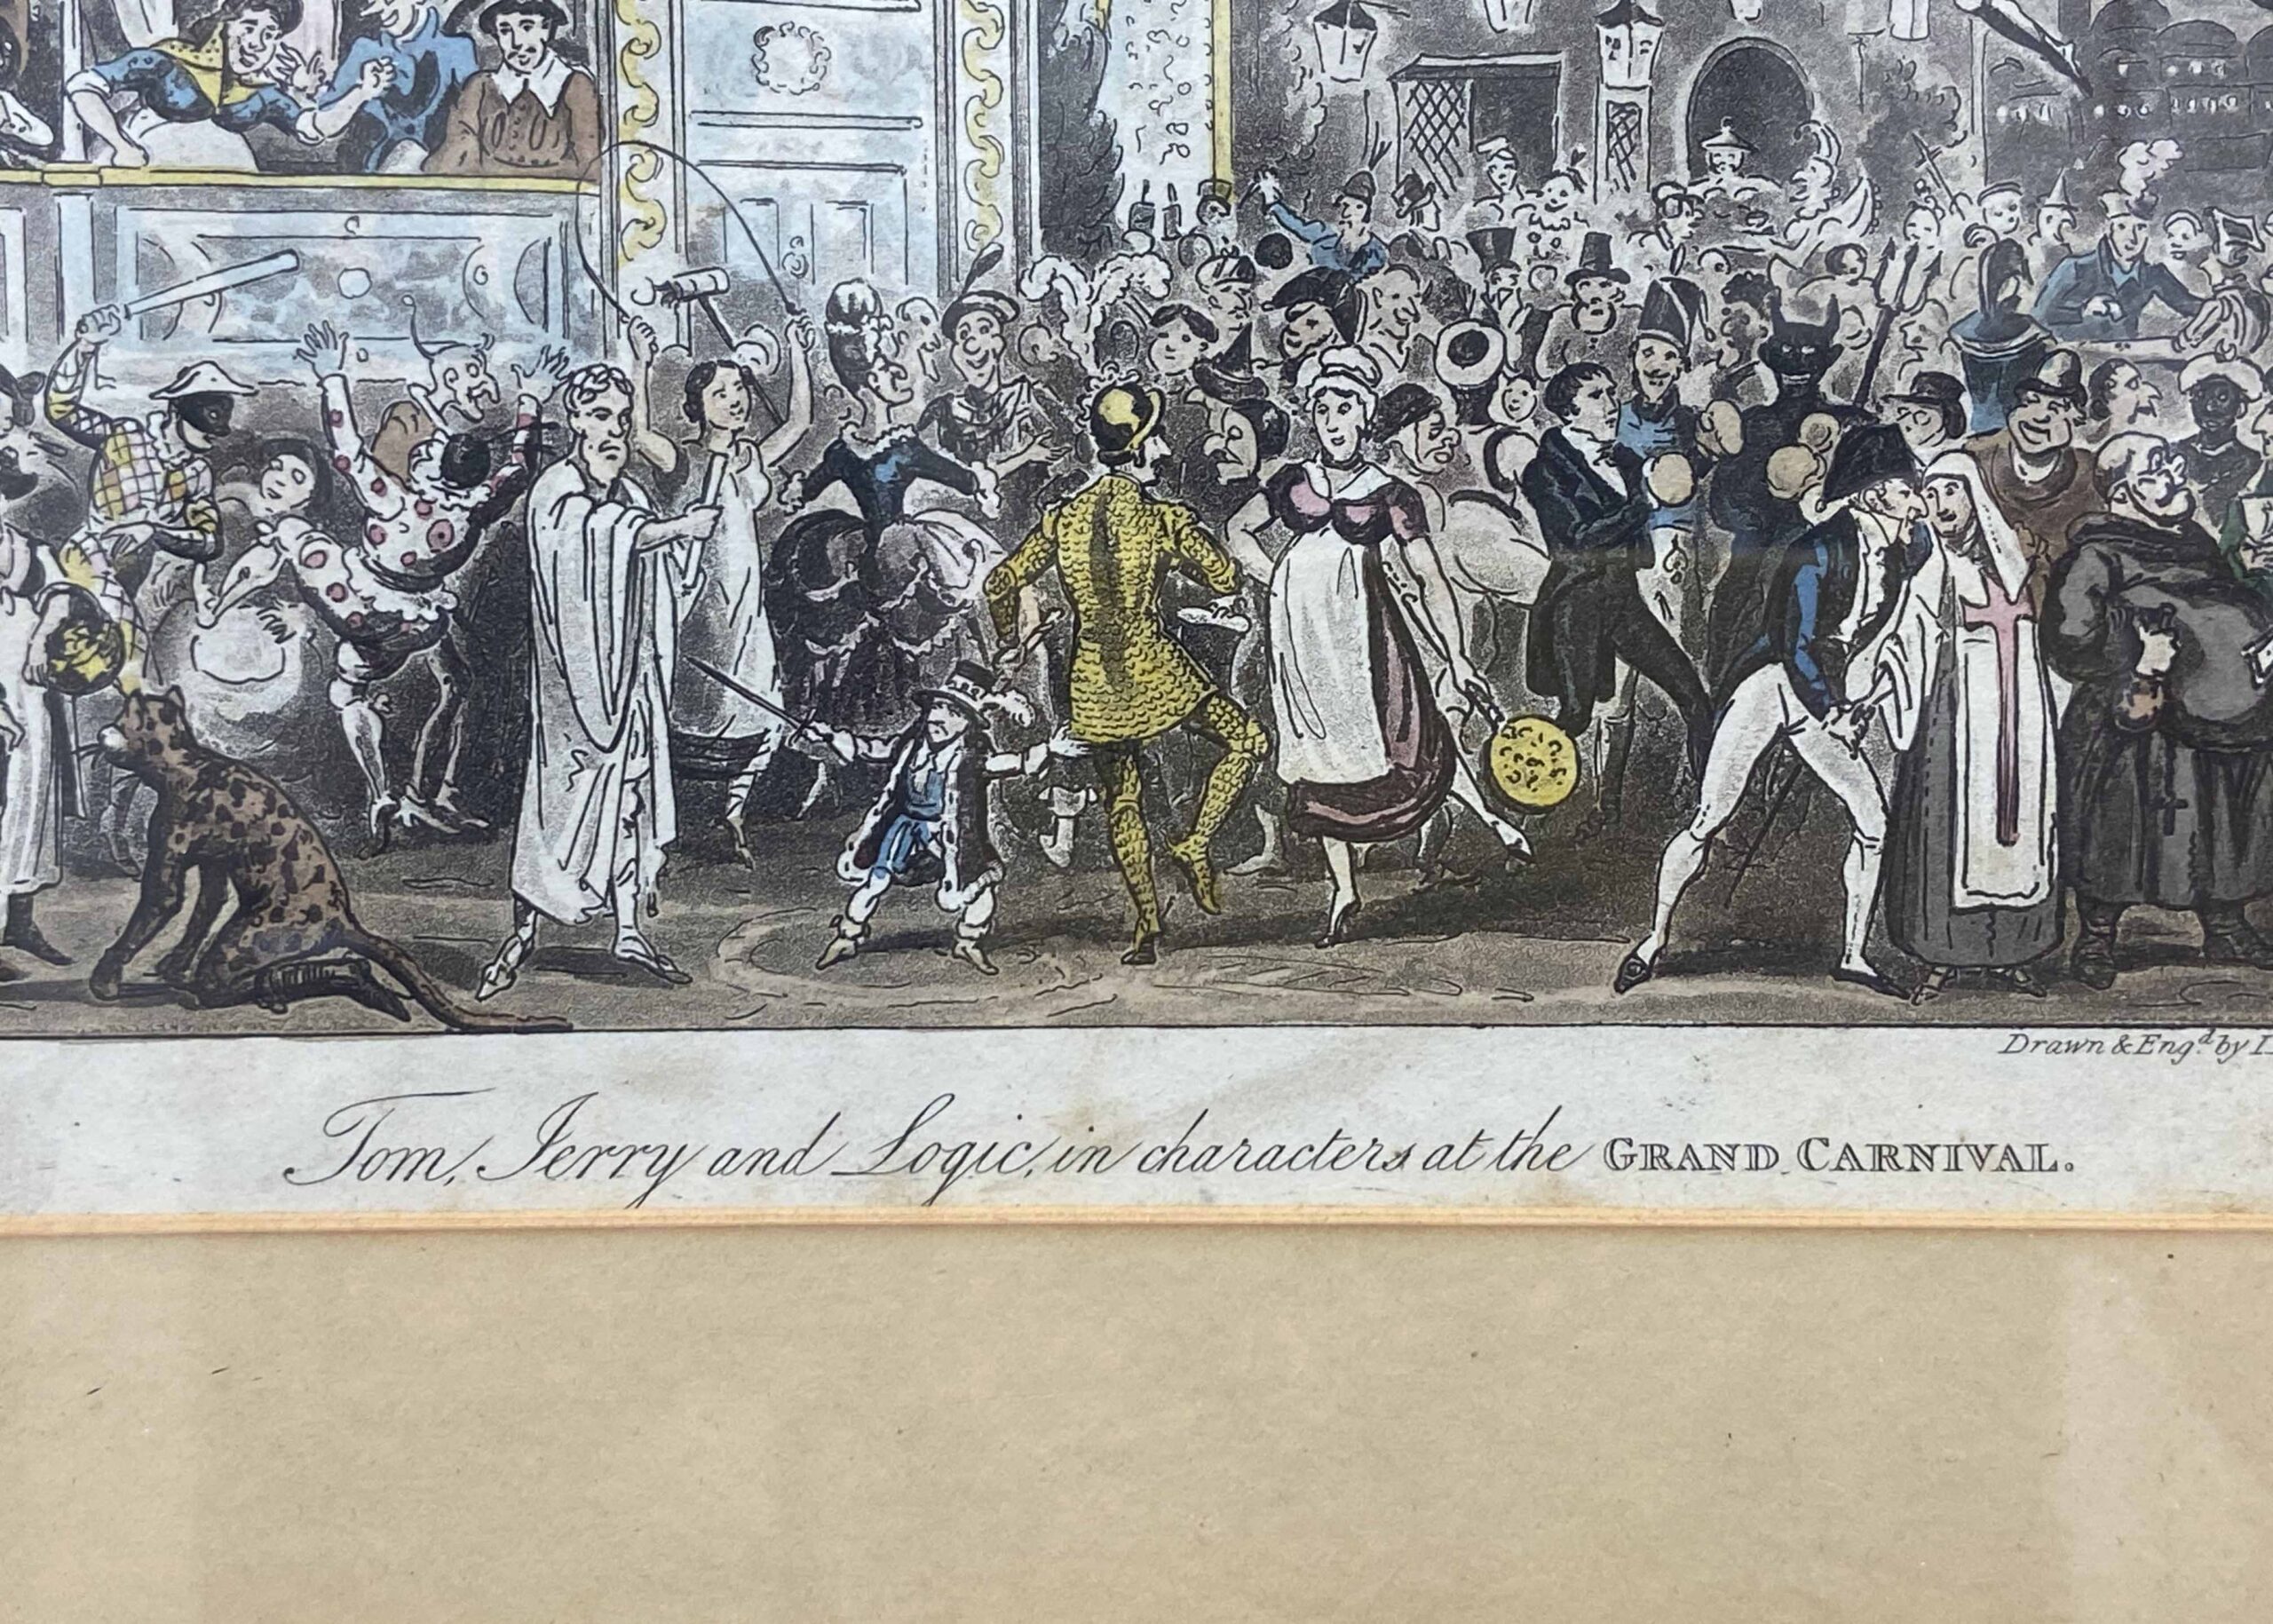 Drawn & Engd. by I.
Tom, Jerry and Logic, in characters at the GRAND CARNIVAL.